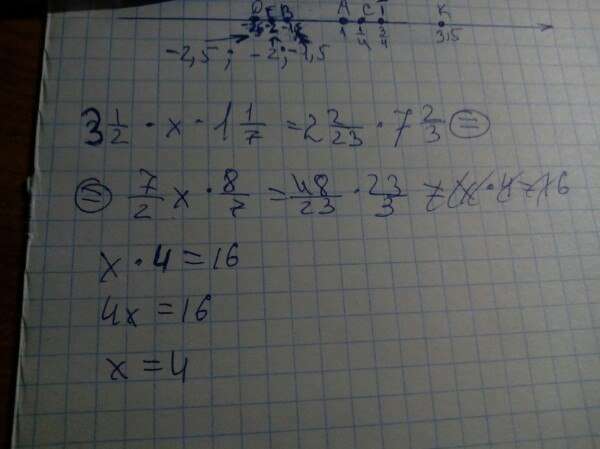 D F B A C T K
-2,5 -2 -1,5 1 1/4 3/4 3,5
-2,5 ; -2 ; -1,5
3 1/2 · x · 1 1/7 = 2 2/23 · 7 2/3 =
= 7/2 x · 8/7 = 48/23 · 23/3
x · 4 = 16
4x = 16
x = 4